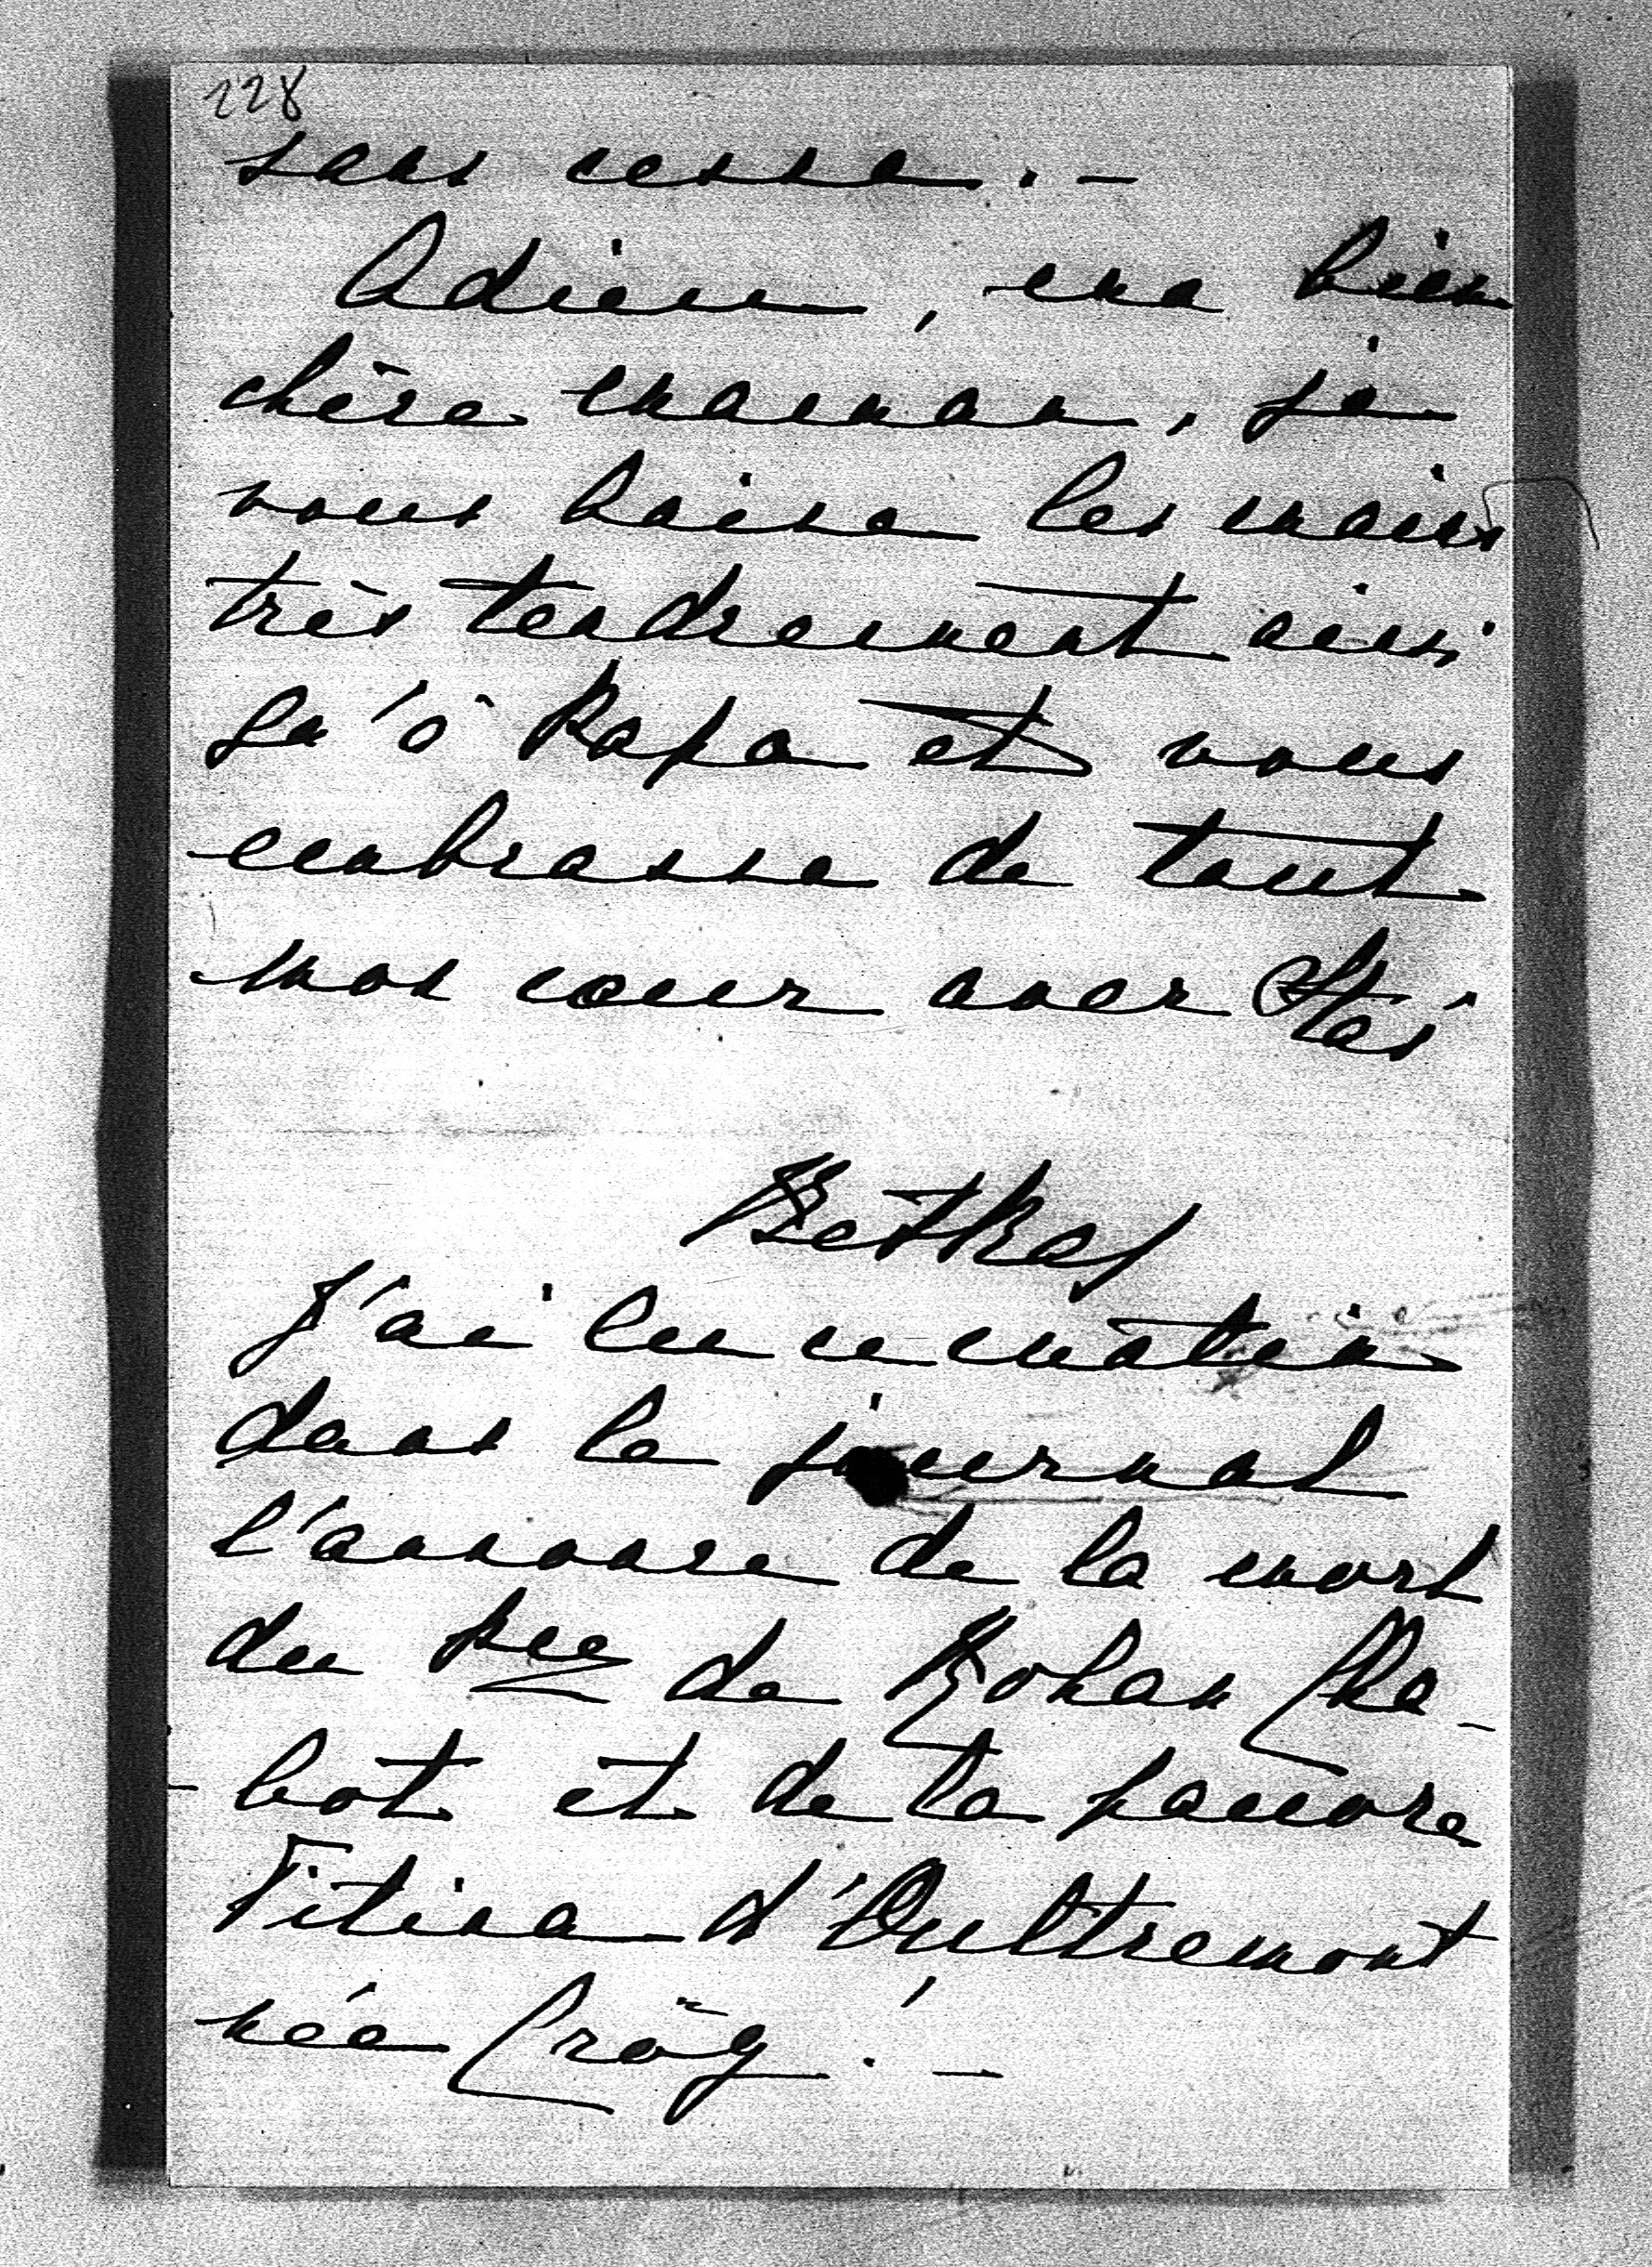 228
sans cesse. -
Adieu, ma bien
chère maman, je
vous baise les mains
très tendrement ainsi
qu'à Papa et vous
embrasse de tout
mon cœur avec Stas
Betka
J'ai lu ce matin
dans le journal
l'annonce de la mort
du Pce de Rohan Cha-
-bot et de la pauvre
Titina d'Oultremont
née Croÿ. -